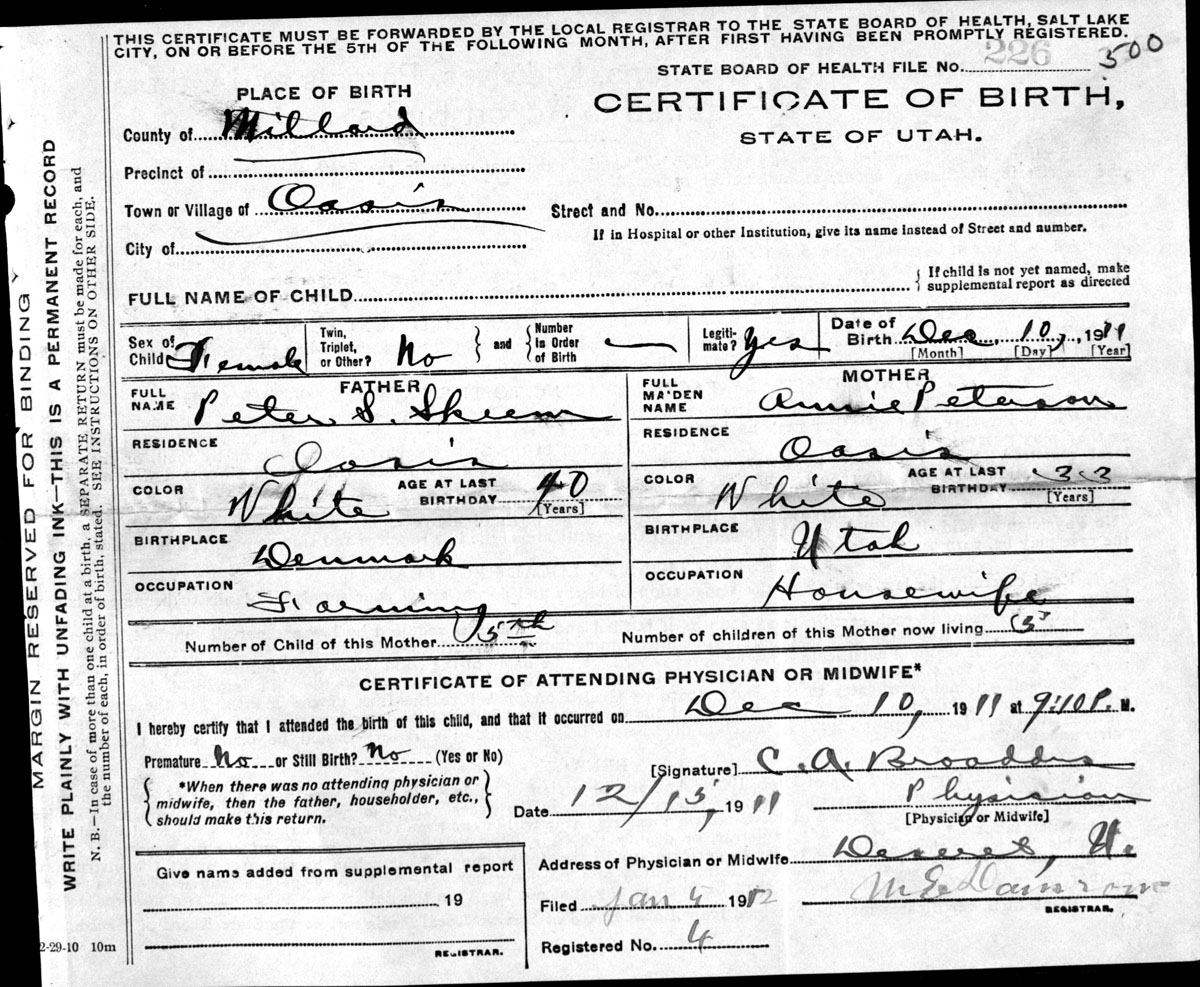 THIS CERTIFICATE MUST BE FORWARDED BY THE LOCAL REGISTRAR TO THE STATE BOARD OF HEALTH, SALT LAKE
CITY, ON OR BEFORE THE 5TH OF THE FOLLOWING MONTH, AFTER FIRST HAVING BEEN PROMPTLY REGISTERED.
STATE BOARD OF HEALTH FILE No. 226 500
PLACE OF BIRTH
CERTIFICATE OF BIRTH,
STATE OF UTAH.
County of Millard
Precinct of
Town or Village of Oasis
Street and No.
City of
If in Hospital or other Institution, give its name instead of Street and number.
FULL NAME OF CHILD
{ If child is not yet named, make
supplemental report as directed
Sex of Child Female
Twin, Triplet, or Other? No
} and { Number in Order of Birth —
Legiti-mate? Yes
Date of Birth Dec, 10, 1911
[Month] [Day] [Year]
FATHER
FULL NAME Peter S. Skeem
RESIDENCE Oasis
COLOR White
AGE AT LAST BIRTHDAY 40 [Years]
BIRTHPLACE Denmark
OCCUPATION Farming
MOTHER
FULL MAIDEN NAME Annie Peterson
RESIDENCE Oasis
COLOR White
AGE AT LAST BIRTHDAY 33 [Years]
BIRTHPLACE Utah
OCCUPATION Housewife
Number of Child of this Mother 5th
Number of children of this Mother now living 5
CERTIFICATE OF ATTENDING PHYSICIAN OR MIDWIFE*
I hereby certify that I attended the birth of this child, and that it occurred on Dec 10, 1911 at 9:10 P. M.
Premature No or Still Birth? No (Yes or No)
{ *When there was no attending physician or
midwife, then the father, householder, etc.,
should make this return. }
[Signature] C. A. Broaddus
Date 12/15, 1911
Physician
[Physician or Midwife]
Address of Physician or Midwife Deseret, U.
Give name added from supplemental report
19
REGISTRAR.
Filed Jan 4 1912
M E
REGISTRAR.
Registered No. 4
2-29-10 10m
MARGIN RESERVED FOR BINDING
WRITE PLAINLY WITH UNFADING INK—THIS IS A PERMANENT RECORD
N. B.—In case of more than one child at a birth, a SEPARATE RETURN must be made for each, and
the number of each, in order of birth, stated. SEE INSTRUCTIONS ON OTHER SIDE.